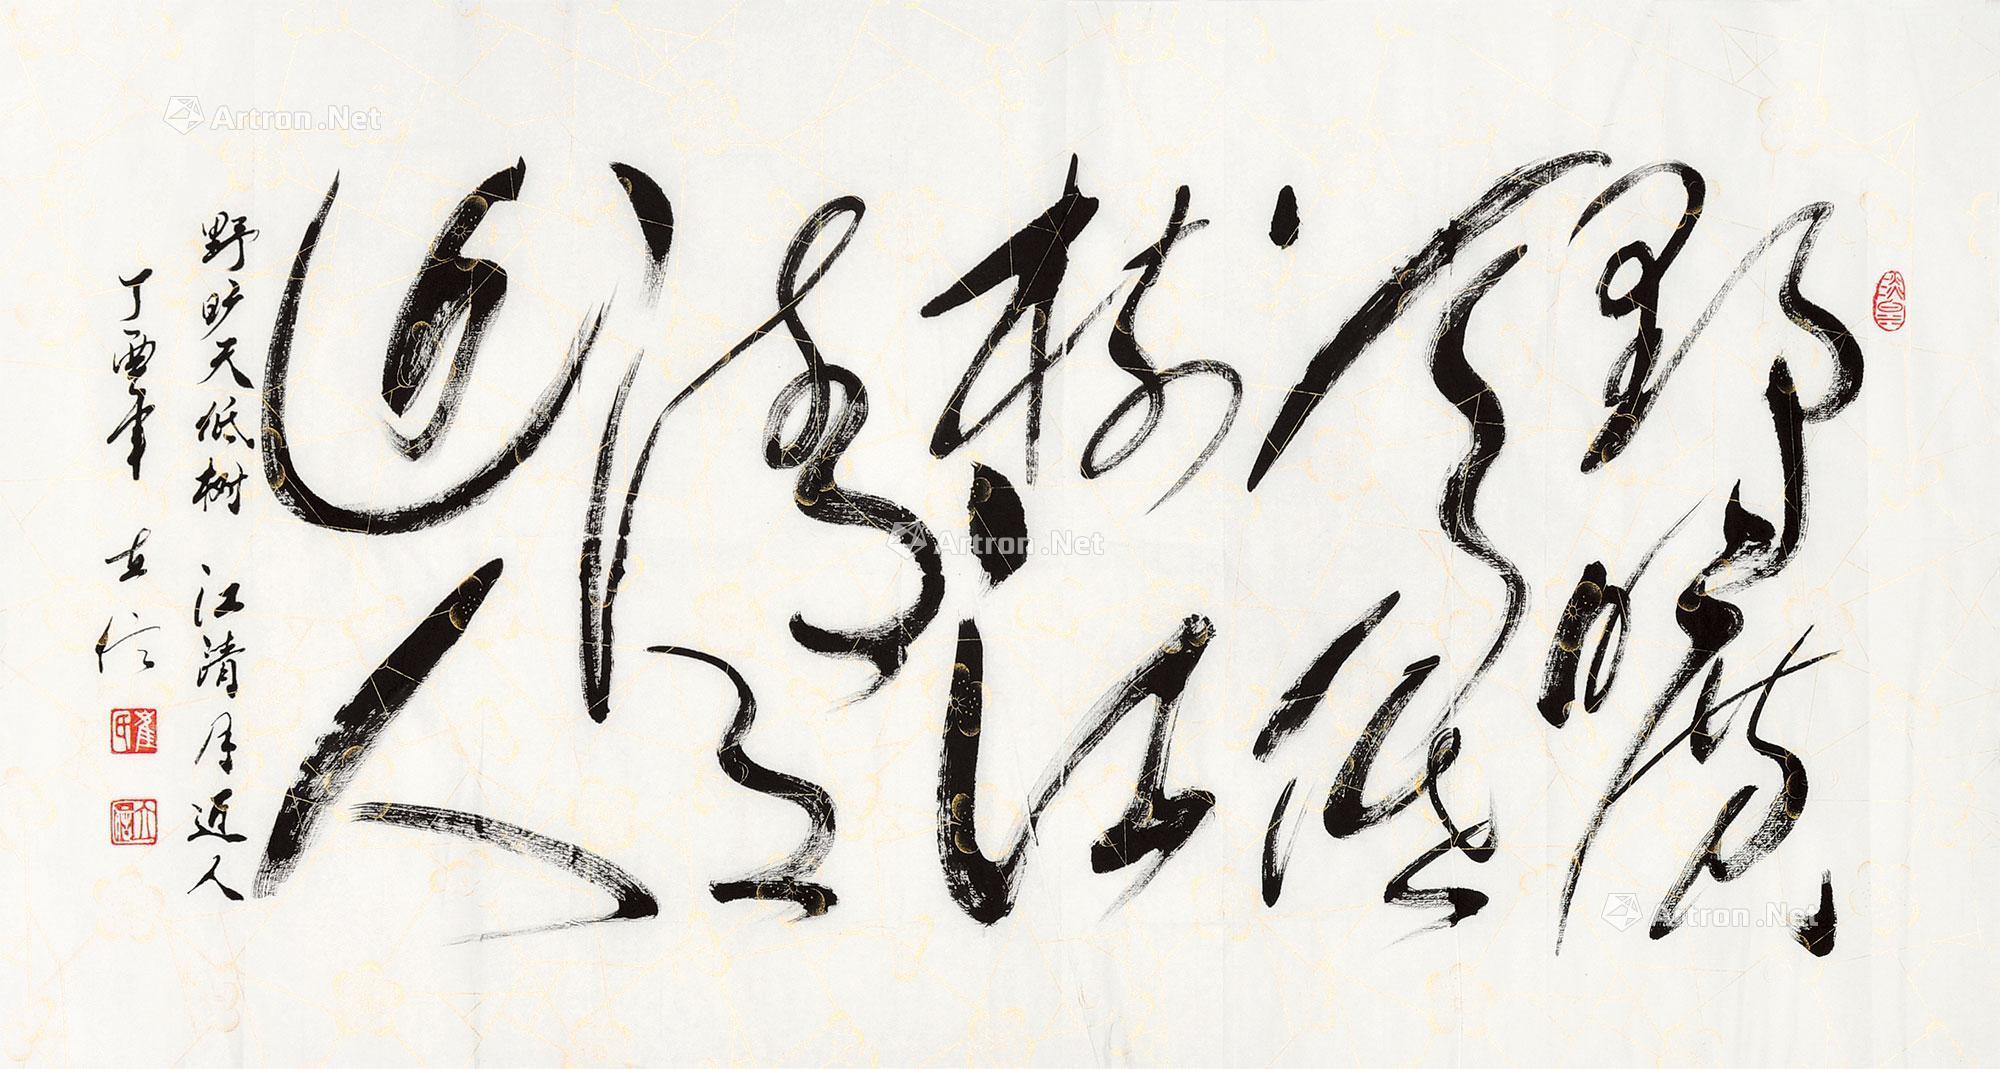 野曠
天低
樹江
清月
近人
野旷天低树 江清月近人
丁酉年 立信
Artron.Net
Artron.Net
Artron.Net